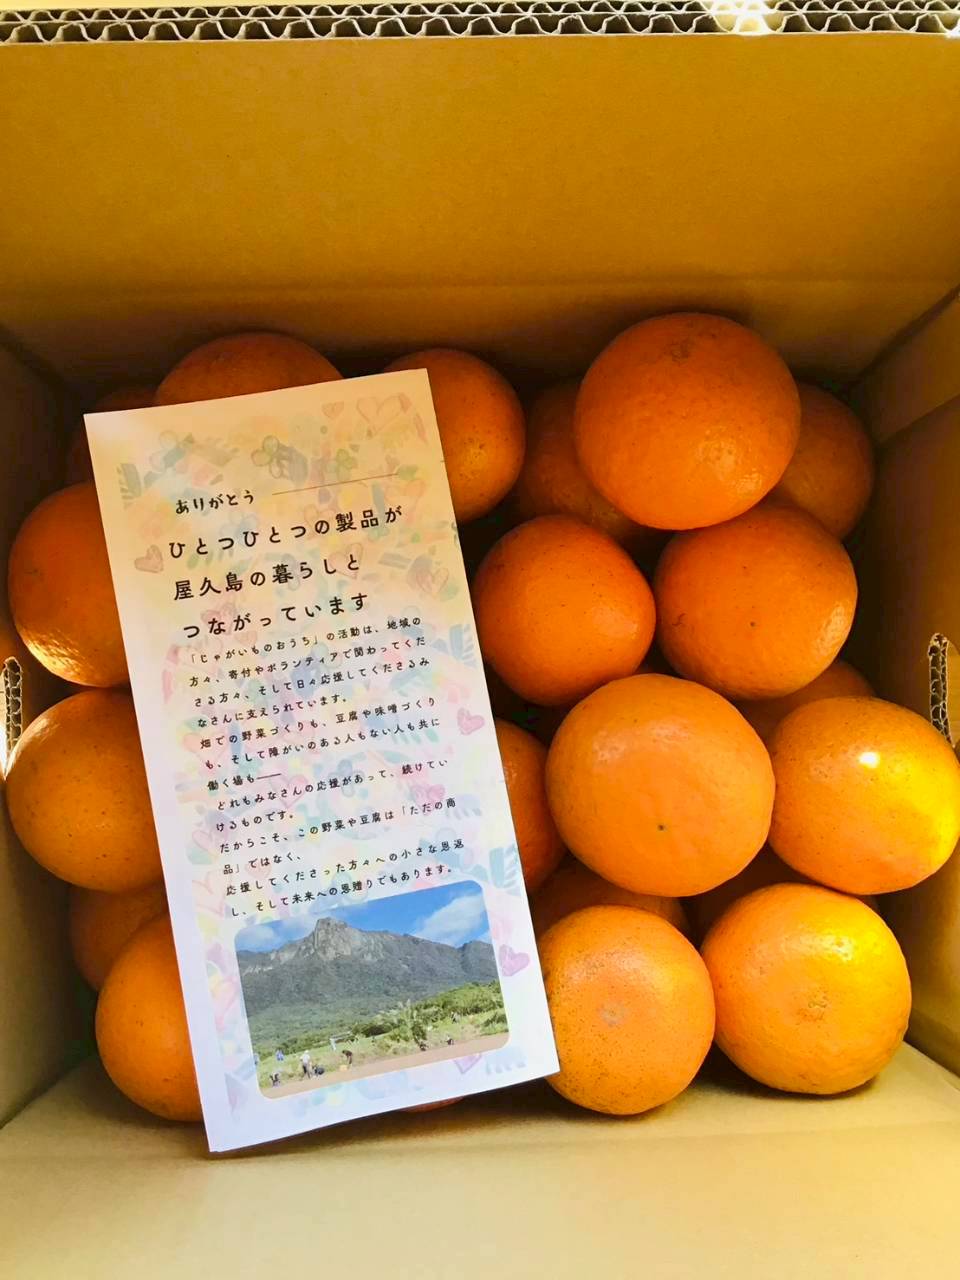 ありがとう
ひとつひとつの製品が
屋久島の暮らしと
つながっています
「じゃがいものおうち」の活動は、地域の
方々、寄付やボランティアで関わってくだ
さる方々、そして日々応援してくださるみ
なさんに支えられています。
畑での野菜づくりも、豆腐や味噌づくり
も、そして障がいのある人もない人も共に
働く場も——
どれもみなさんの応援があって、続けてい
けるものです。
だからこそ、この野菜や豆腐は「ただの商
品」ではなく、
応援してくださった方々への小さな恩返
し、そして未来への恩贈りでもあります。